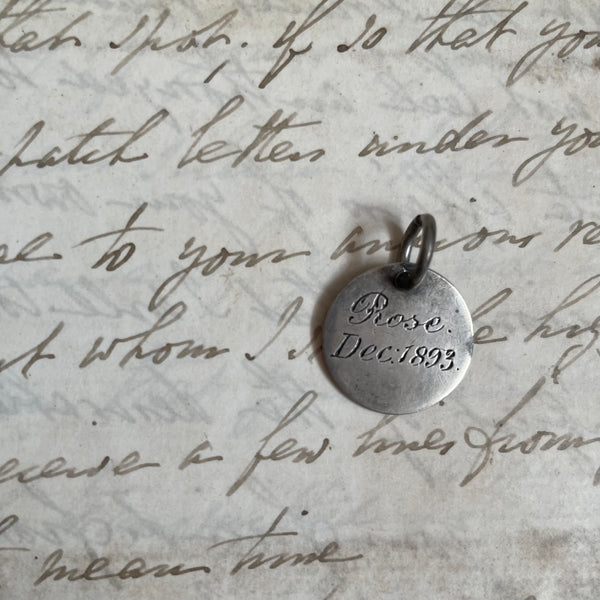 that spot, if so that you
patch letters under you
to your anxious re
t whom I
Rose.
Dec: 1893.
receive a few lines from
t mean time